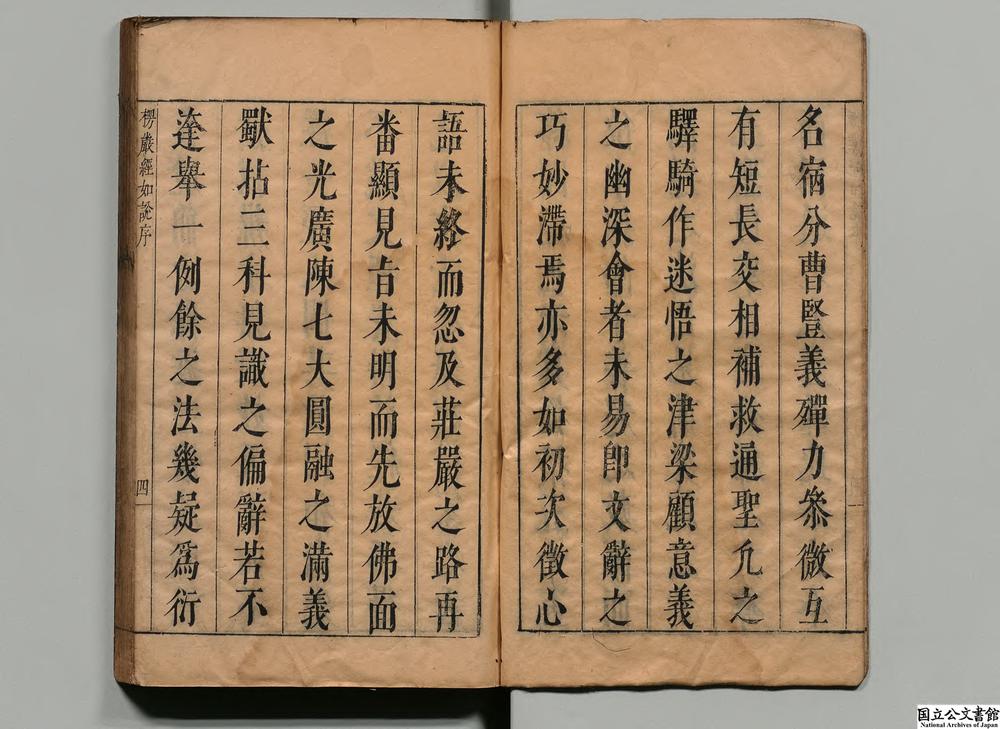 名宿分曹豎義殫力叅微互
有短長交相補救通聖凡之
驛騎作迷悟之津梁顧意義
之幽深會者未易卽文辭之
巧妙滯焉亦多如初次徵心
語未終而忽及莊嚴之路再
番顯見旨未明而先放佛面
之光廣陳七大圓融之滿義
獣拈三科見識之偏辭若不
達舉一例餘之法幾疑爲衍
楞嚴經如說序
四
国立公文書館
National Archives of Japan